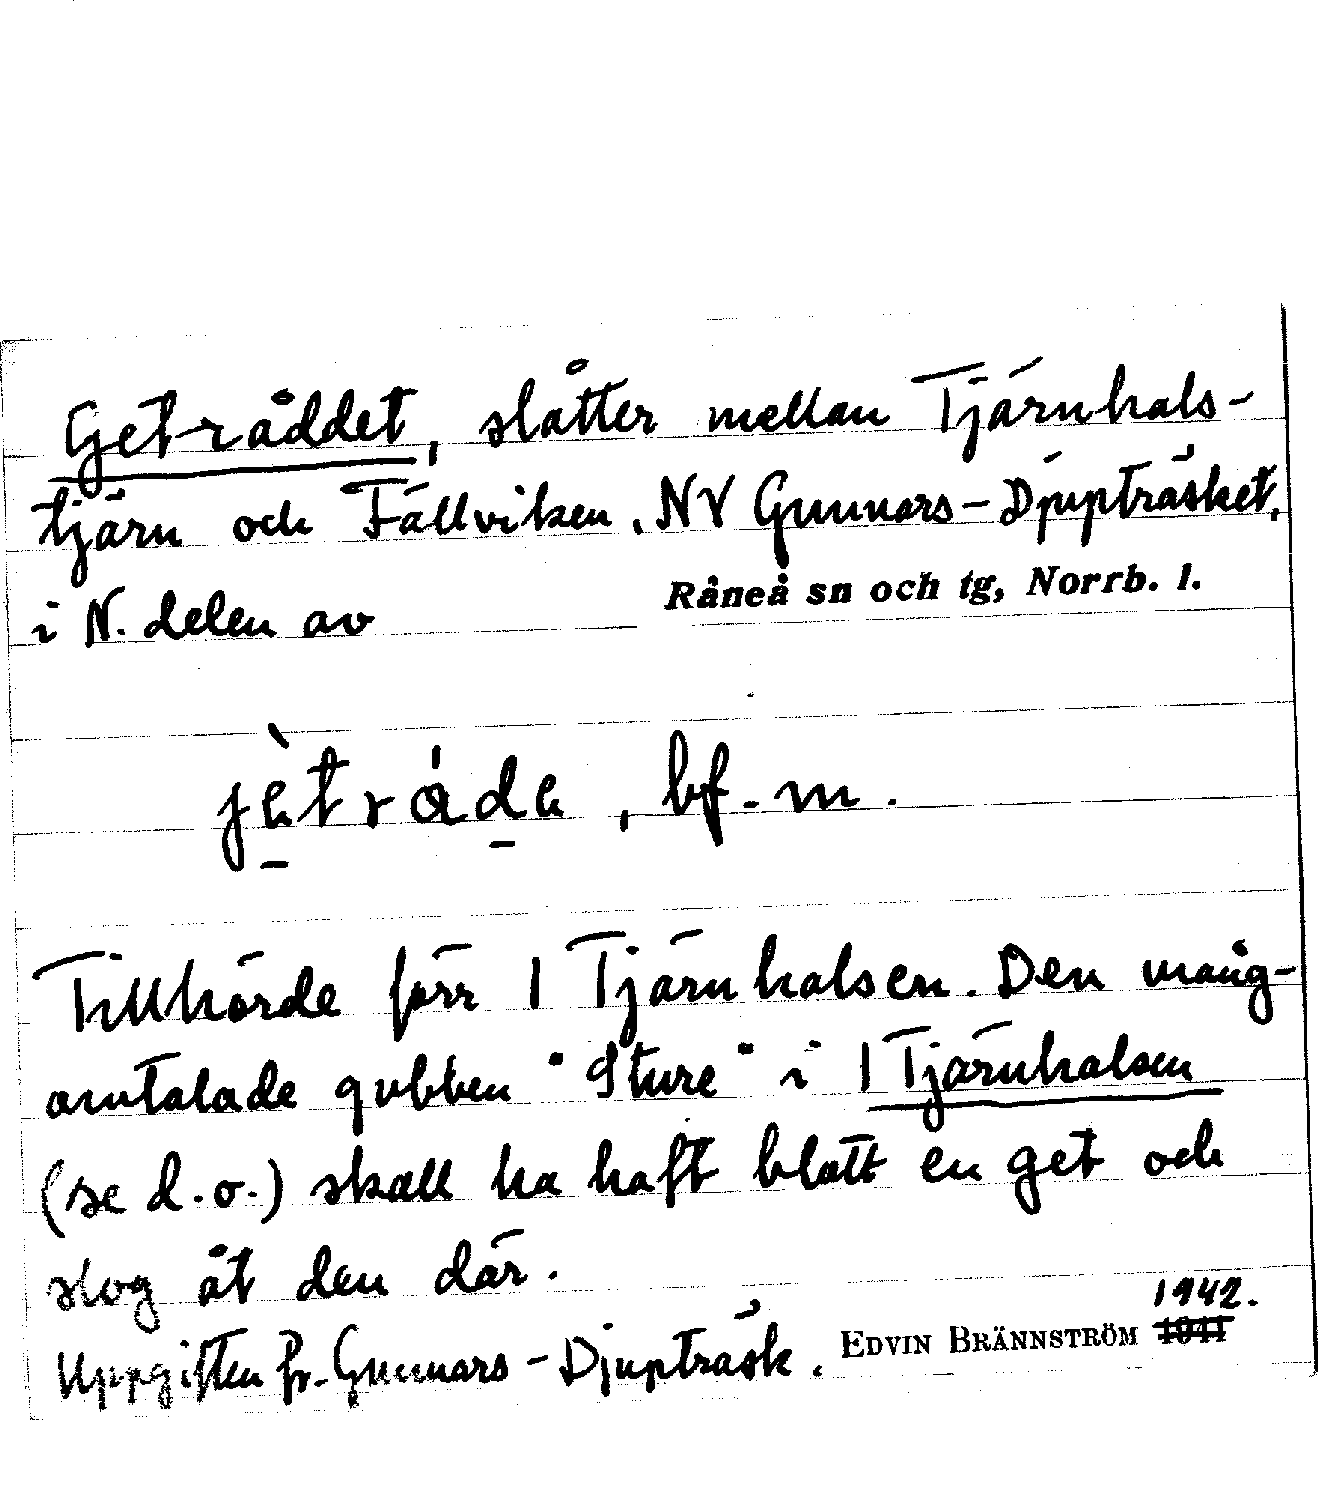 Geträddet, slåtter mellan Tjärnhals-
tjärn och Fällviken, NV Gunnars-Djupträsket,
i N. delen av Råneå sn och tg, Norrb. l.
jètráde, bf. m.
Tillhörde förr 1 Tjärnhalsen. Den mång-
omtalade gubben "Sture" i 1 Tjärnhalsen
(se d.o.) skall ha haft blott en get och
slog åt den där.
Uppgiften fr. Gunnars-Djupträsk. EDVIN BRÄNNSTRÖM 1941 1942.